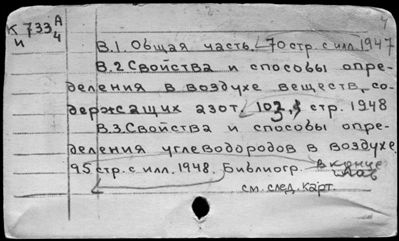 К 733 А
и 4
4
В.1. Общая часть. 70 стр. с илл. 1947
В.2 Свойства и способы опре-
деления в воздухе веществ, со-
держащих азот. 103, стр. 1948
В.3. Свойства и способы опре-
деления углеводородов в воздухе.
95 стр. с илл. 1948. Библиогр. в конце
глав
см. след. карт.